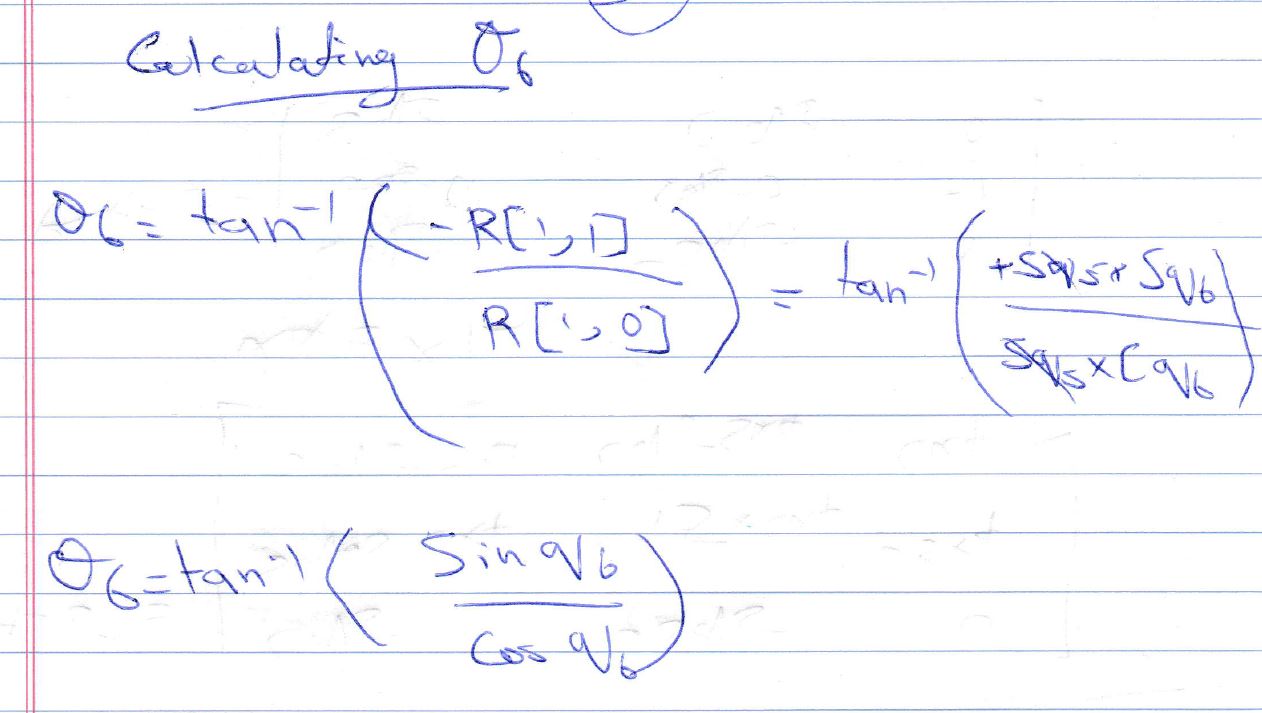 Calculating θ6
θ6 = tan⁻¹ ( -R[1,1] / R[1,0] ) = tan⁻¹ ( +Sq5 × Sq6 / Sq5 × Cq6 )
θ6 = tan⁻¹ ( Sin q6 / Cos q6 )